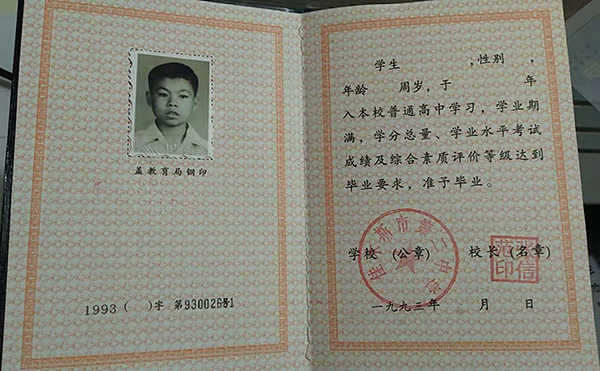 盖教育局钢印
1993 ( ) 字 第9300261号
学生 ,性别 ,
年龄 周岁,于 年
入本校普通高中学习,学业期
满,学分总量、学业水平考试
成绩及综合素质评价等级达到
毕业要求,准予毕业。
佳木斯市第二中学
学校 (公章) 校长 (名章)
一九九三年 月 日